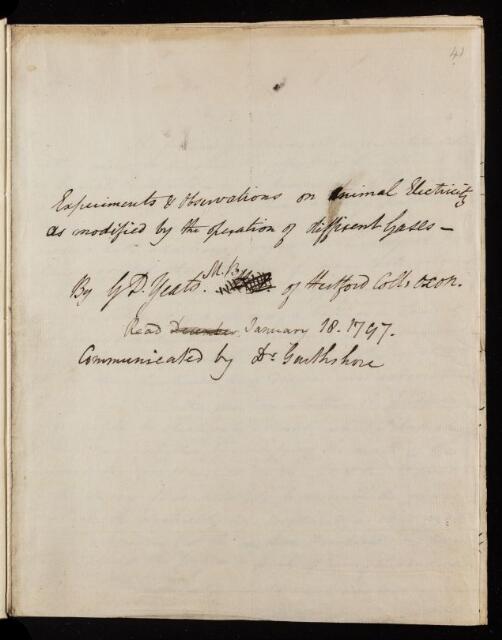 41
Experiments & Observations on Animal Electricity
as modified by the operation of different Gases —
By G D. Yeats. M.B. of Hertford Coll: Oxon.
Read December January 18. 1797.
Communicated by Dr. Garthshore